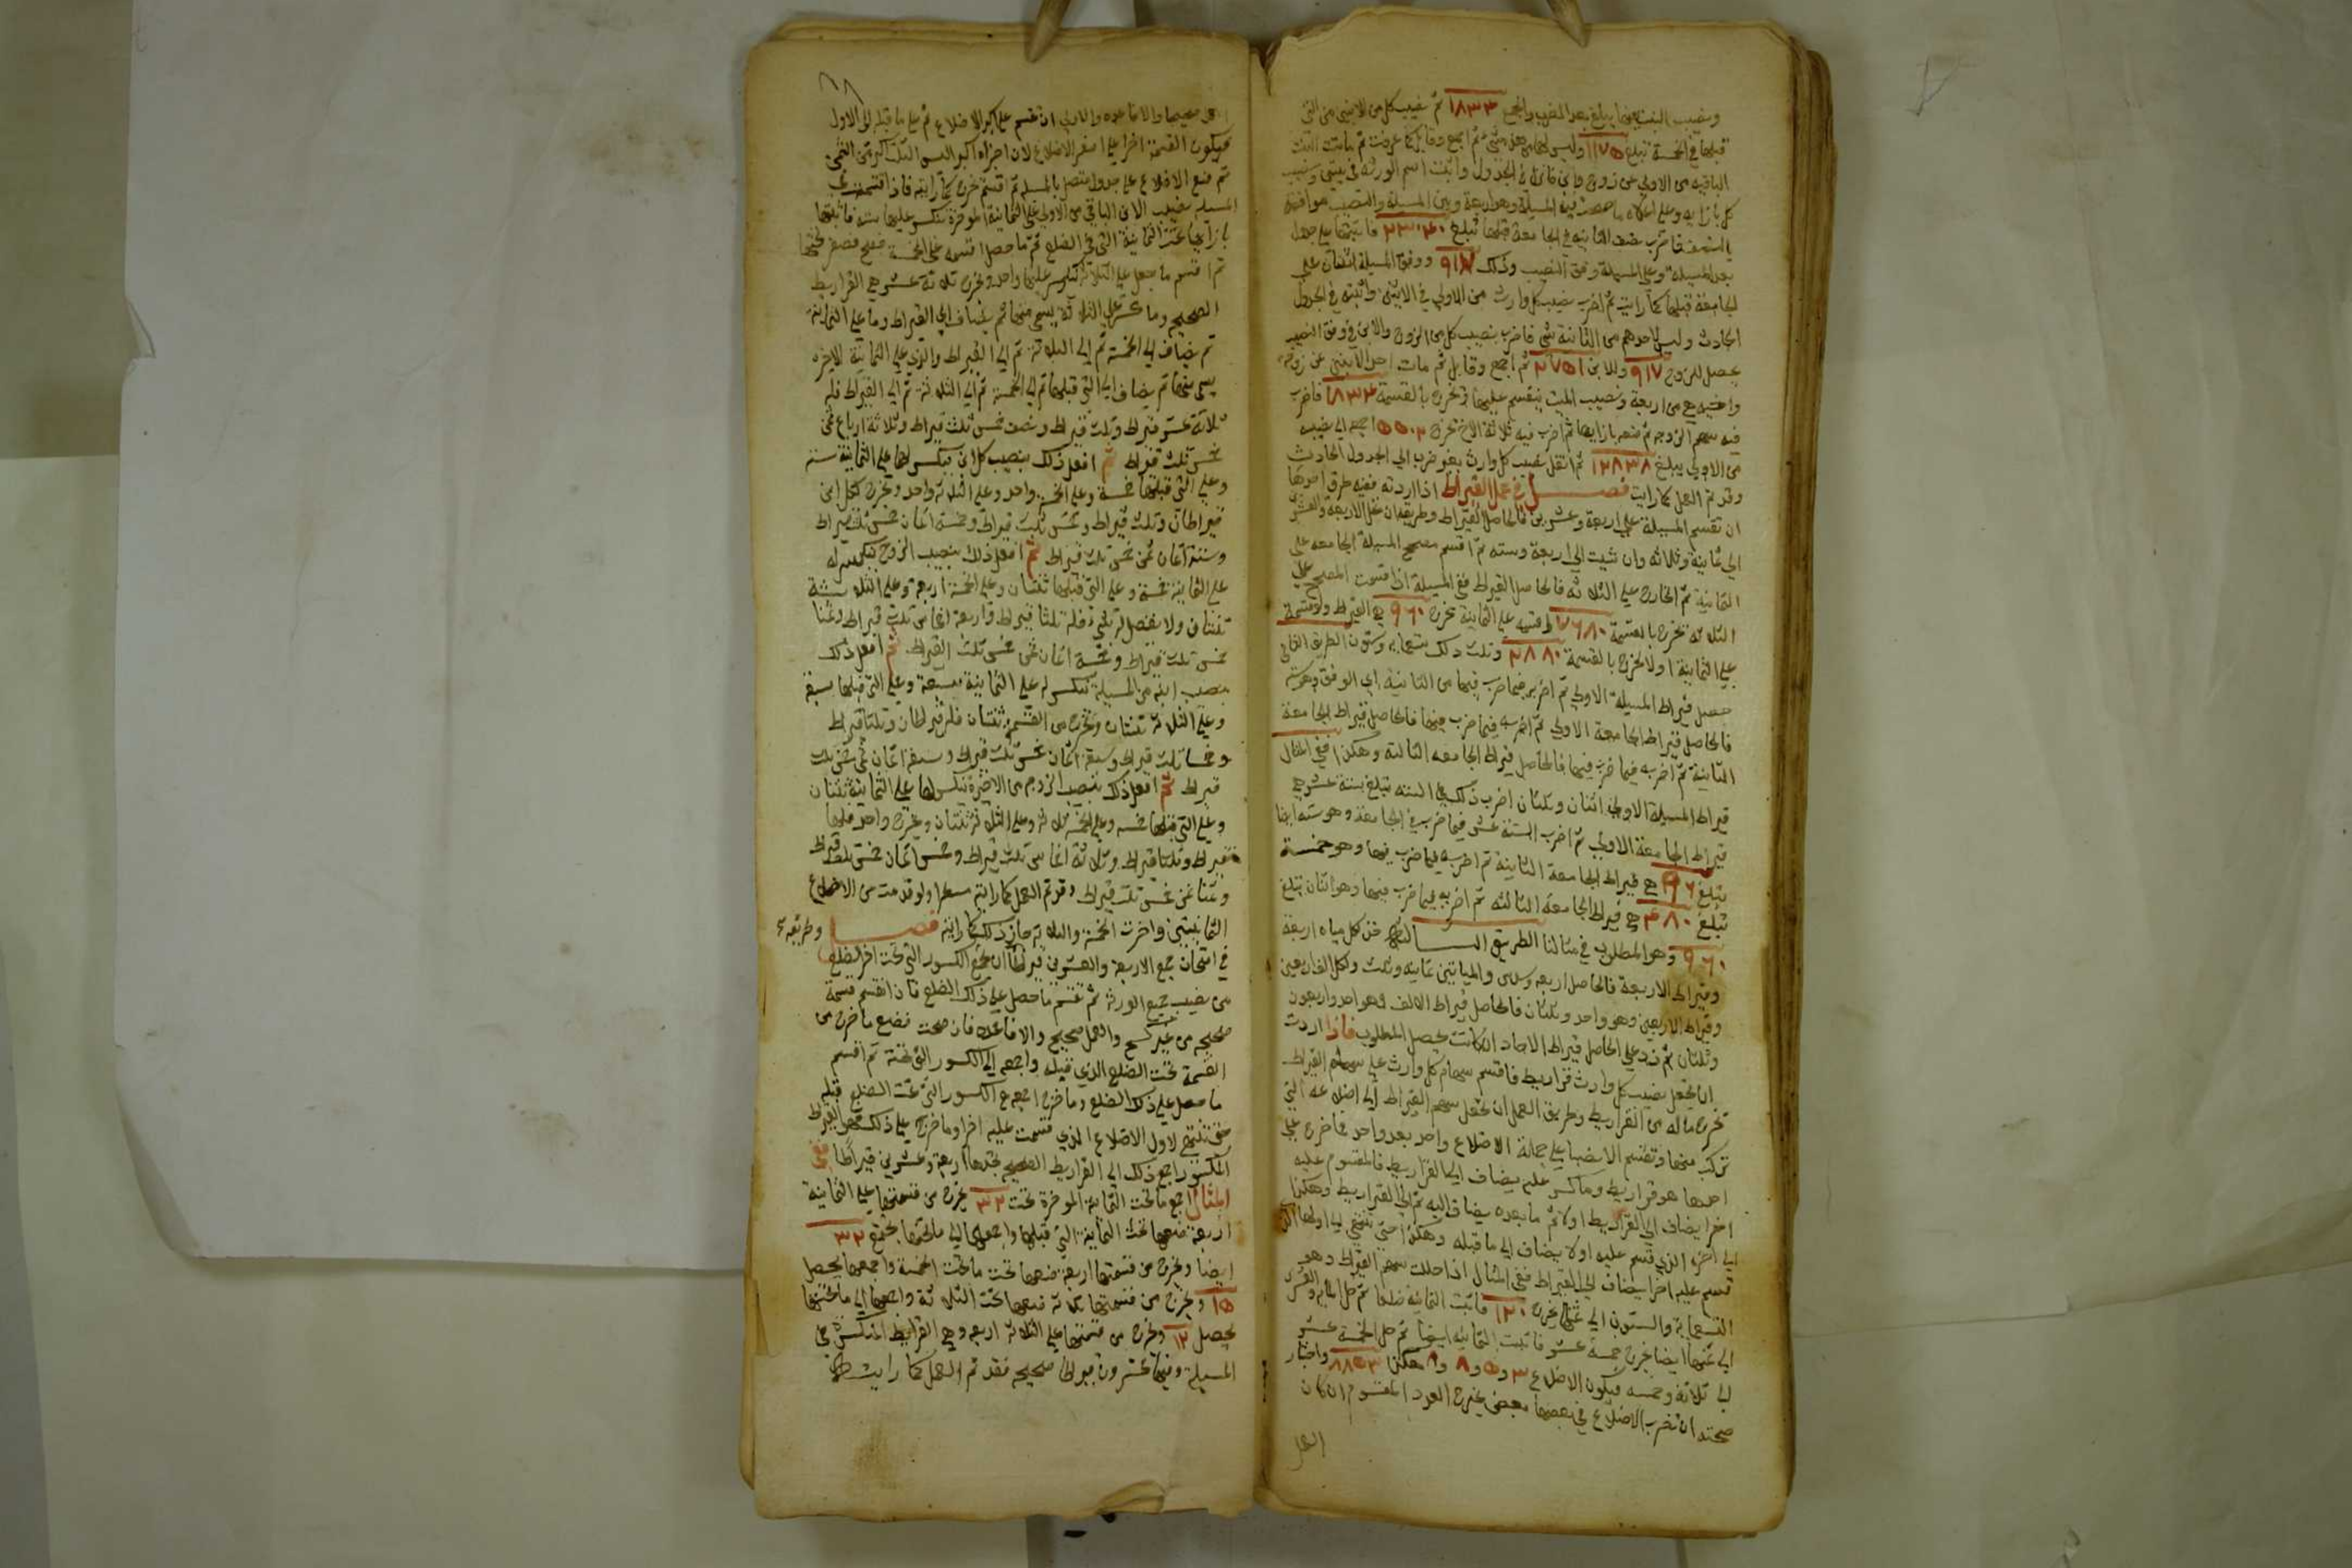 ونصيب البنت فيما يبلغ بعد الضرب والجمع ١٨٣٤ ثم نصيب كل من الابنين من التي
قبلها في الخمسة تبلغ ١١٧٥ وليس لهما من هذه شي ثم اجمع وقابل كما عرفت ثم ماتت البنت
الباقيه من الاولى عن زوج وابن فانزل في الجدول واثبت اسم الورثه في بيتي ونصيب
كل بازايه وعلى اعلاه ما صحت فيه المسيلة وهو اربعة وبين المسيلة والنصيب موافقة
بالنصف فاضرب نصف الثانيه في الجامعة قبلها تبلغ ٢٣٠٤٠ فاثبتها على جدول
بعد المسيله وعلى المسيلة وفق النصيب وذلك ٩١٧ ووفق المسيلة اثنان على
الجامعة قبلها كما رايت ثم اضرب نصيب كل وارث من الاولى في الاثنين واثبته في الجدول
الحادث وليس لاحدهم من الثانية شي فاضرب نصيب كل من الزوج والابن في وفق النصيب
يحصل للزوج ٩١٧ وللابن ٢٧٥١ ثم اجمع وقابل ثم مات احد الابنين عن زوجه
واخيه صح من اربعة ونصيب الميت ينقسم عليها وتخرج بالقسمة ١٨٣٤ فاضرب
فيه سهم الزوجه ثم ضعه بازايها ثم اضرب فيه ثلاثة الاخ تخرج ٥٥٠٢ اجمعه الى نصيبه
من الاولى يبلغ ١٢٨٣٨ ثم انقل نصيب كل وارث بغير ضرب الى الجدول الحادث
وقد تم العمل كما رايت فصل في عمل القيراط اذا اردته ففيه طرق احدها
ان تقسم المسيلة على اربعة وعشرين فالحاصل القيراط وطريقه ان تحل الاربعة والعشرين
الى ثمانية وثلاثه وان شيت الى اربعة وسته ثم اقسم مصحح المسيلة الجامعه على
الثمانية ثم الخارج على الثلاثه فالحاصل القيراط ففي المسيلة اذا قسمت المصحح على
الثلاثه تخرج بالقسمة ٧٦٨٠ اقسمه على الثمانية تخرج ٩٦٠ هي القيراط ولو قسمته
على الثمانية اولا تخرج بالقسمة ٢٨٨٠ وثلث ذلك تسعمايه وستون الطريق الثاني
حصل قيراط المسيلة الاولى ثم اضربه فيما ضرب فيها من الثانية اي الوفق وهو سته
فالحاصل قيراط الجامعة الاولى ثم اضربه فيما ضرب فيها فالحاصل قيراط الجامعة
الثانية ثم اضربه فيما ضرب فيها فالحاصل قيراط الجامعه الثالثة وهكذا ففي المثال
قيراط المسيلة الاولى اثنان وثلثان اضرب ذلك في السته تبلغ ستة عشر هي
قيراط الجامعة الاولى ثم اضرب الستة عشر فيما ضرب في الجامعة وهو سته ايضا
تبلغ ٩٦ هي قيراط الجامعة الثانية ثم اضربه فيما ضرب فيها وهو خمسة
تبلغ ٤٨٠ هي قيراط الجامعة الثالثه ثم اضربه فيما ضرب فيها وهو اثنان تبلغ
٩٦٠ وهو المطلوب في مثالنا الطريق الثالث خذ لكل مياه اربعة
وقيراط الاربعة فالحاصل اربعه وسدس والمياتين ثمانيه وثلث ولكل الف اربعين
وقيراط الاربعين وهو واحد وثلثان فالحاصل قيراط الالف وهو احد واربعون
وثلثان ثم زد على الحاصل قيراط الاحاد ان كانت يحصل المطلوب فاذا اردت
ان تجعل نصيب كل وارث قراريط فاقسم سهام كل وارث على سهم القيراط
تخرج ماله من القراريط وطريق العمل ان تحل سهم القيراط الى اضلاعه التي
تركب منها وتقسم الانصبا على جملة الاضلاع واحد بعد واحد فما خرج على
احدها هو قراريط وما كسر عليه يضاف الى القراريط فالمقسوم عليه
اخرا يضاف الى القراريط اولا ثم ما بعده يضاف اليه ثم الى القراريط وهكذا
الى اخره الذي قسم عليه اولا يضاف الى ما قبله وهكذا حتى تنتهي الى اولها الذي
قسم عليه اخرا يضاف الى القيراط ففي المثال اذا حللت سهم القيراط وهو
التسعماية والستون الى ثمنها تخرج ١٢٠ فاثبت الثمانية ضلعا ثم حل الماية والعشرين
الى ثمنها ايضا تخرج خمسة عشر فاثبت الثمانيه ايضا ثم حل الخمسة عشر
الى ثلاثة وخمسه فيكون الاضلاع ٣ و ٥ و ٨ و ٨ هكذا ٨٨٥٣ واختبار
صحته ان تضرب الاضلاع في بعضها بعض يخرج العدد المقسوم ان كان
العمل
العمل صحيحا والا فاعده والاولى ان تقسم على اكبر الاضلاع ثم على ما قبله الى الاول
فيكون القسمة اخرا على اصغر الاضلاع لان اجزاه اكبر اليس الثلث اكبر من الثمن
ثم ضع الاضلاع على جدول متصل بالمسيله ثم اقسم تخرج كما رايته فاذا اقتسمت في
المسيله نصيب الابن الباقي من الاولى على الثمانية الموخرة تنكسر عليها سته فاثبتها
بازايها تحت الثمانية التي في الضلع ثم ما حصل اقسمه على الخمسة فصح فصفر تحتها
ثم اقسم ما حصل على الثلاثة انكسر عليها واحد وتخرج ثلاثة عشر هي القراريط
الصحيح وما كسر على الثلاثة يسمى منها ثم يضاف الى القيراط وما على الثمانية
ثم يضاف الى الخمسة ثم الى الثلاثة ثم الى القيراط والذي على الثمانية الاخره
يسمى منها ثم يضاف الى التي قبلها ثم الى الخمسة ثم الى الثلاثة ثم الى القيراط فله
ثلاثة عشر قيراط وثلث قيراط ونصف خمس ثلث قيراط وثلاثة ارباع ثمن
خمس ثلث قيراط ثم افعل ذلك بنصيب كل ابن ينكسر لها على الثمانية سته
وعلى التي قبلها خمسة وعلى الخمسة واحد وعلى الثلاثه واحد وتخرج لكل ابن
قيراطان وثلث قيراط وخمس ثلث قيراط وخمسة اثمان خمس ثلث قيراط
وستة اثمان ثمن خمس ثلث قيراط ثم افعل ذلك بنصيب الزوج ينكسر له
على الثمانية خمسة وعلى التي قبلها ثنتان وعلى الخمسة اربعة وعلى الثلاثة
ثنتان ولا يفضل له شي فله ثلثا قيراط واربعة اخماس ثلث قيراط وثمنا
خمس ثلث قيراط وخمسة اثمان ثمن خمس ثلث القيراط ثم افعل ذلك
بنصيب ابنه من المسيلة تنكسر له على الثمانية سبعة وعلى التي قبلها سبعة
وعلى الثلاثة ثنتان وتخرج من القسمة ثنتان فله قيراطان وثلثا قيراط
وخمسا ثلث قيراط وسبعة اثمان خمس ثلث قيراط وسبعة اثمان ثمن خمس ثلث
قيراط ثم افعل ذلك بنصيب الزوجه من الاخيرة تنكسر لها على الثمانية ثنتان
وعلى التي قبلها خمسه وعلى الخمسة ثلاثة وعلى الثلاثة ثنتان وتخرج واحد فلها
قيراط وثلثا قيراط وثلاثة اخماس ثلث قيراط وخمس اثمان خمس ثلث قيراط
وثمنا ثمن خمس ثلث قيراط وقد تم العمل كما رايته مسطرا ولو قدمت من الاضلاع
الثمانيتين واخرت الخمسة والثلاثة جاز ذلك كما رايته فصل وطريقه
في امتحان جمع الاربعة والعشرين قيراطا ان تجمع الكسور التي تحت اخر الضلع
من نصيب جميع الورثه ثم تقسم ما حصل على ذلك الضلع فان انقسم قسمة
صحيحه من غير كسر والعمل صحيح والا فاعده فان صحت فضع ما خرج من
القسمة تحت الضلع الذي قبله واجمعه الى الكسور التي تحته ثم اقسم
ما حصل على ذلك الضلع وما خرج اجمعه مع الكسور التي تحت الضلع قبله
حتى تنتهي لاول الاضلاع الذي قسمت عليه اخرا وما خرج على ذلك فهو القيراط
المكسور اجمع ذلك الى القراريط الصحيح تجدها اربعة وعشرين قيراطا ففي
المثال اجمع ما تحت الثمانية الموخرة تحت ٣٢ يخرج من قسمتها على الثمانية
اربعة ضعها تحت الثمانية التي قبلها واجمعها الى ما تحتها يجتمع ٣٢
ايضا وتخرج من قسمتها اربعة ضعها تحت ما تحت الخمسة واجمعها يحصل
١٥ وتخرج من قسمتها ثلاثه ضعها تحت الثلاثة واجمعها الى ما تحتها
يحصل ١٢ وتخرج من قسمتها على الثلاثه اربعه وهي القراريط المنكسرة في
المسيلة وفيها عشرون قيراطا صحيحه فقد تم العمل كما رايت